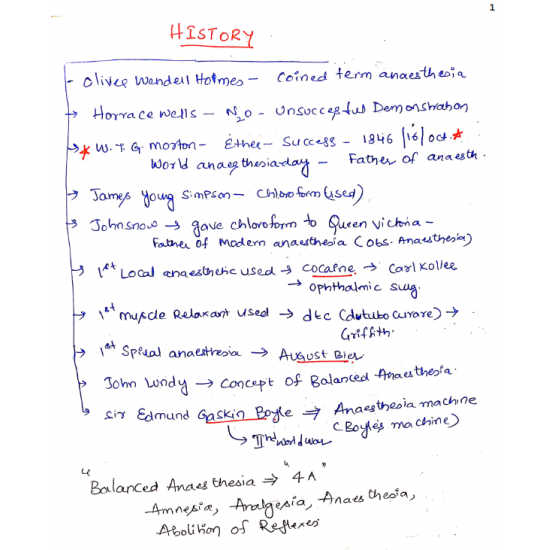 1
HISTORY
- Oliver Wendell Holmes - Coined term anaesthesia
→ Horrace wells - N₂O - Unsuccesful Demonstration
→ * W.T.G. Morton - Ether - Success - 1846 |16| oct. *
World anaesthesia day - Father of anaesth.
→ James Young Simpson - Chloroform (used)
→ John snow → gave chloroform to Queen Victoria -
Father of Modern anaesthesia (obs. Anaesthesia)
→ 1st Local anaesthetic used → cocaine → Carl Koller
→ ophthalmic surg.
→ 1st muscle Relaxant used → dtc (dutubocurare) →
Griffith.
→ 1st Spinal anaesthesia → August Bier
→ John Lundy → concept of Balanced Anaesthesia.
→ Sir Edmund Gaskin Boyle ⇒ Anaesthesia machine
(Boyle's machine)
↳ IInd world war
"Balanced Anaesthesia ⇒ "4A"
Amnesia, Analgesia, Anaesthesia,
Abolition of Reflexes